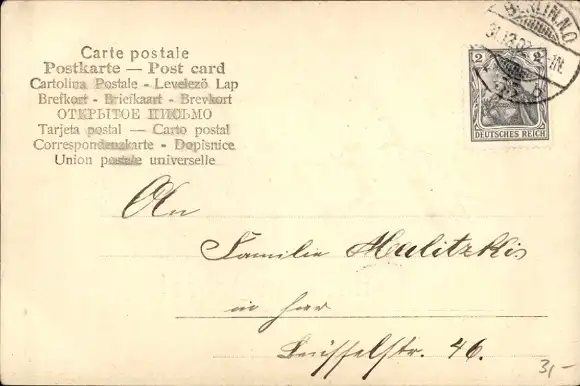 Carte postale
Postkarte — Post card
Cartolina Postale - Levelező Lap
Brefkort - Briefkaart - Brevkort
ОТКРЫТОЕ ПИСЬМО
Tarjeta postal — Carto postal
Correspondenzkarte - Dopisnice
Union postale universelle
BERLIN.N.O.
2 2
DEUTSCHES REICH
An
Familie Mulitzkis
in hier
46.
3,-